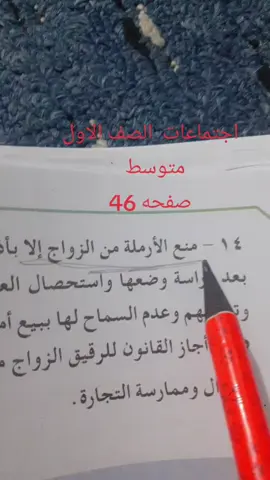 اجتماعات الصف الاول
متوسط
صفحه 46
١٤ - منع الأرملة من الزواج إلا بأذ
بعد دراسة وضعها واستحصال الع
وعدم السماح لها ببيع أم
أجاز القانون للرقيق الزواج م
وممارسة التجارة .